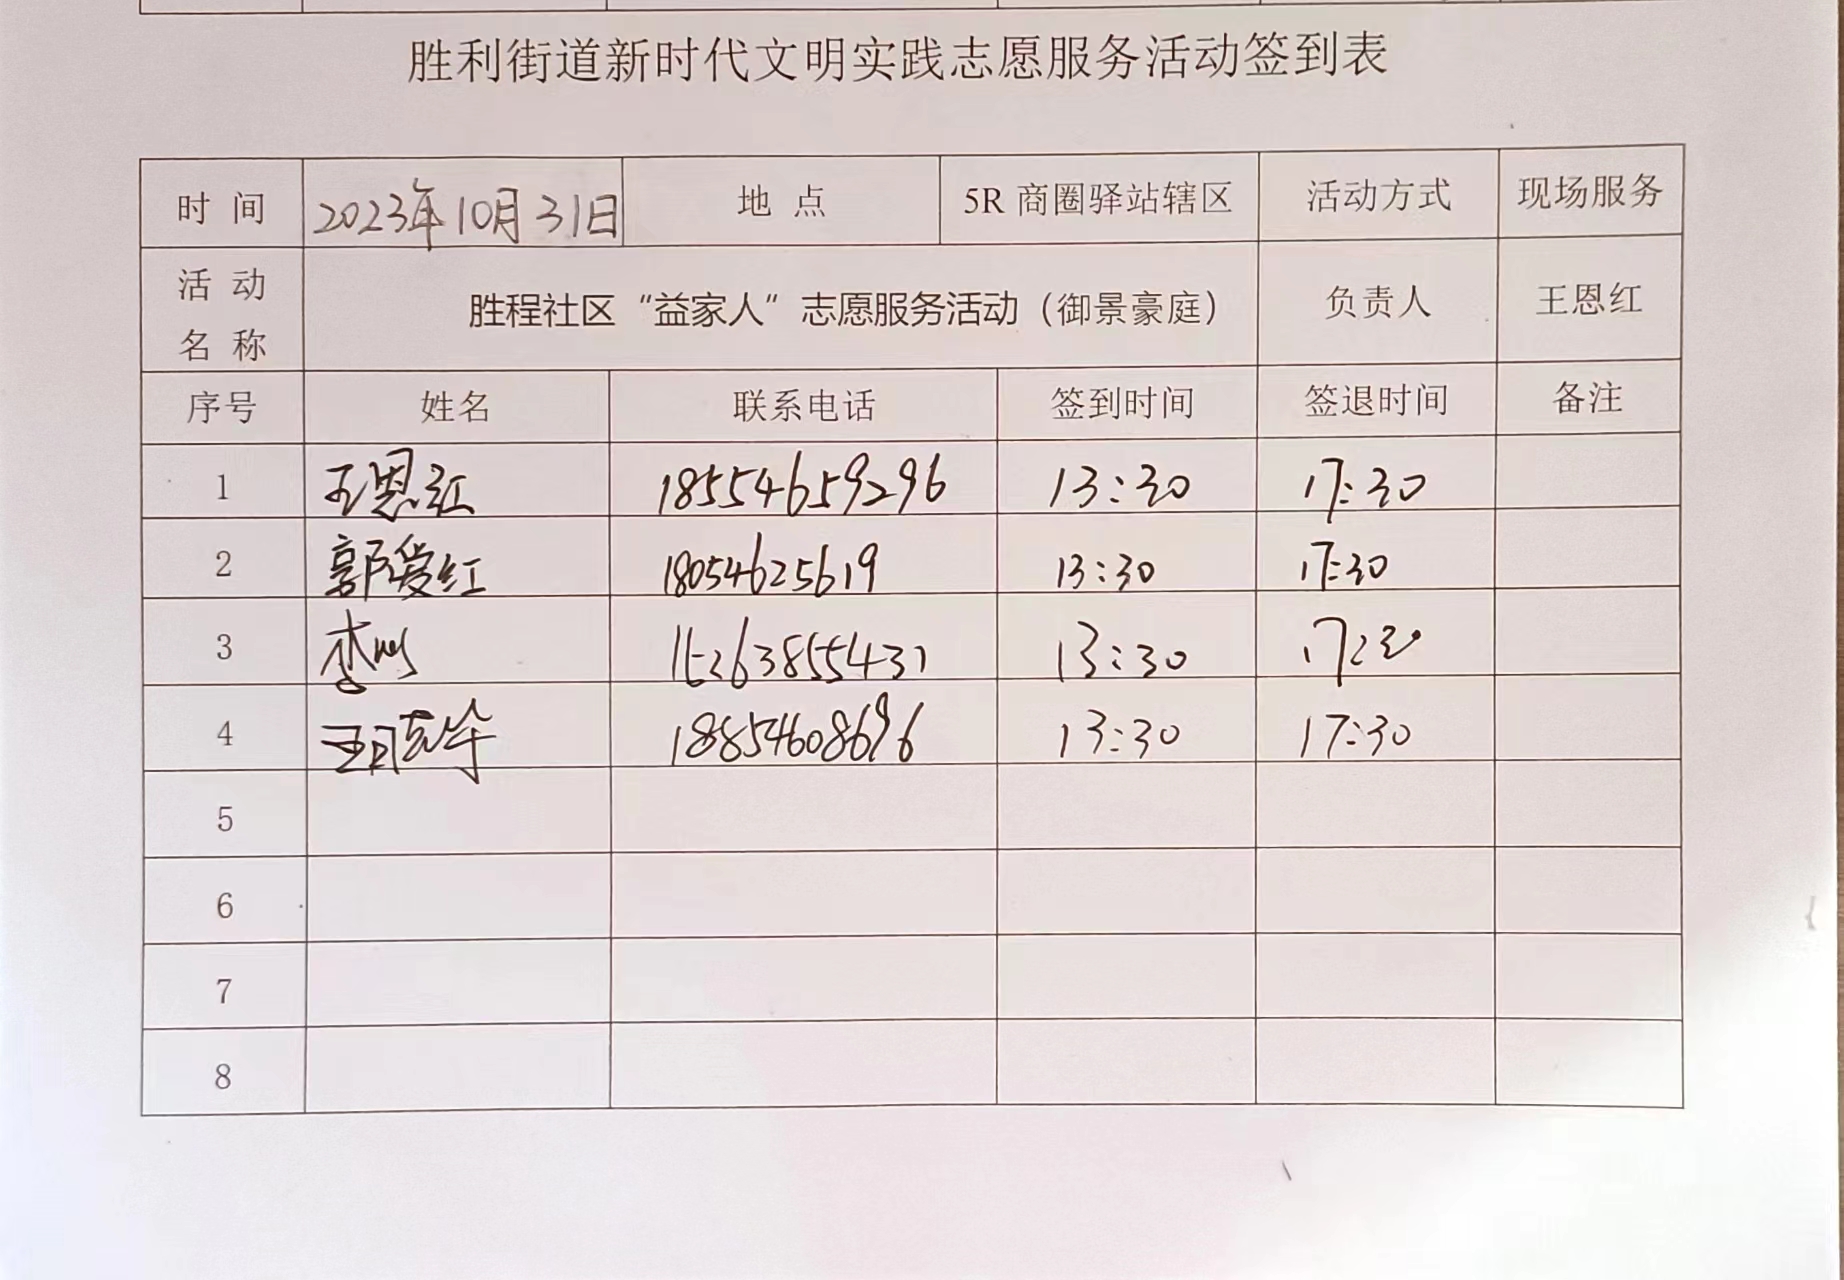 胜利街道新时代文明实践志愿服务活动签到表
时 间 2023年10月31日 地 点 5R 商圈驿站辖区 活动方式 现场服务
活 动
名 称 胜程社区“益家人”志愿服务活动（御景豪庭） 负责人 王恩红
序号 姓名 联系电话 签到时间 签退时间 备注
1 王恩红 18554659296 13:30 17:30
2 郭爱红 18054625619 13:30 17:30
3 15263855431 13:30 17:30
4 18854608696 13:30 17:30
5
6
7
8